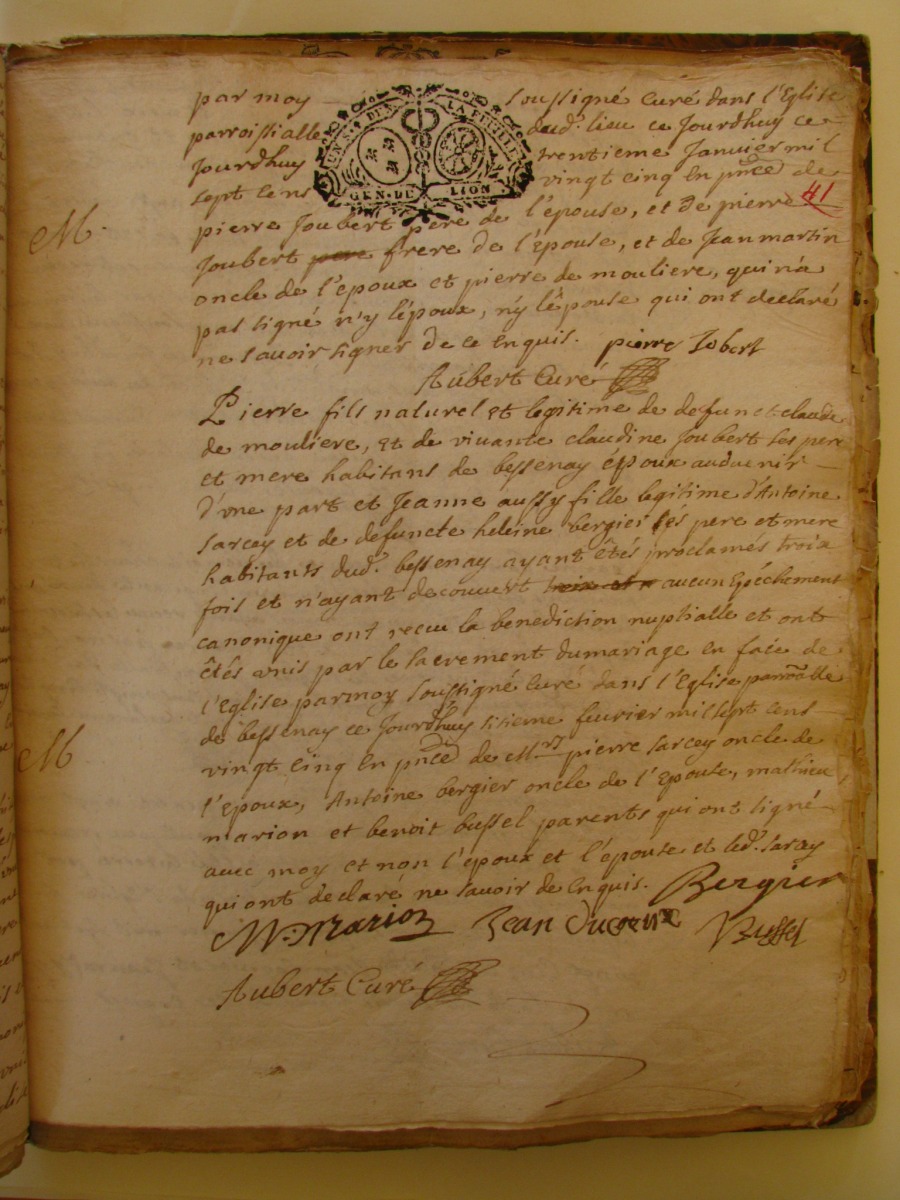 par moy soussigné Curé dans l'Eglise
parroissialle dud. lieu ce Jourdhuy ce
Jourdhuy trentieme Janvier mil
sept cens vingt cinq En pñce de
UN S. DEN. LA FEUILLE
GEN. DE LION
41
pierre Joubert pere de l'epouse, et de pierre
M.
Joubert pere frere de l'Epouse, et de Jean martin
oncle de l'epoux et pierre de mouliere, qui n'a
pas signé n'y lépoux, ny lépouse qui ont declaré
ne savoir signer de ce Enquis. pierre Jobert
Aubert Curé
Pierre fils naturel et legitime de defunct claude
de mouliere, et de vivante claudine Joubert ses pere
et mere habitans de bessenay époux aduenir
d'vne part et Jeanne aussy fille legitime d'Antoine
Sarcey et de defuncte heleine bergier ses pere et mere
habitants dud. bessenay ayant êtés proclamés troix
fois et n'ayant decouvert aucun Epéchement
canonique ont recu la benediction nuptialle et ont
êtés vnis par le sacrement du mariage en face de
l'Eglise par moy soussigné Curé dans l'Eglise parroalle
de bessenay ce Jourdhuy sisieme feurier mil sept cens
M
vingt cinq En pñce de Mrs pierre sarcey oncle de
l'epoux, Antoine bergier oncle de l'Epouse, mathieu
marion et benoit bussel parents qui ont signé
auec moy et non l'époux et l'épouse et led. sarcey
qui ont declaré ne savoir de Enquis. Bergier
M. Marion Jean Bussel
Aubert Curé